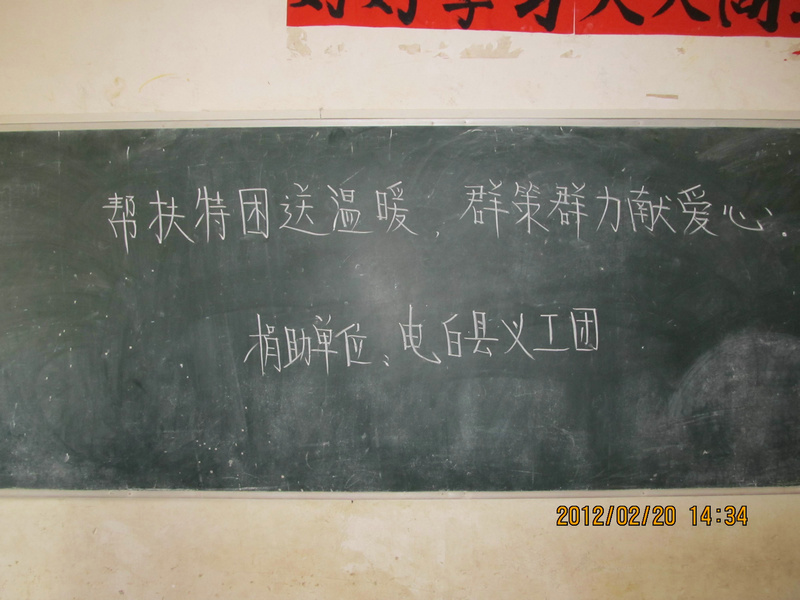 好好学习天天向上
帮扶特困送温暖，群策群力献爱心.
捐助单位、电白县义工团
2012/02/20 14:34